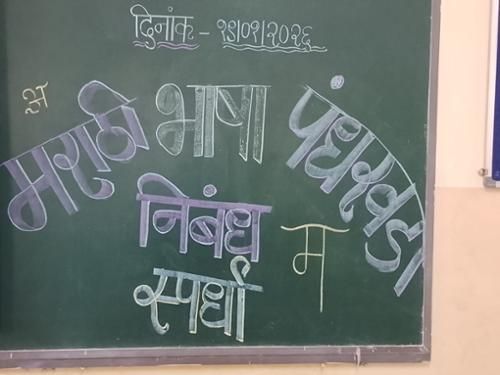 दिनांक - १९/०१/२०२६
अ
मराठी भाषा पंधरवडा
निबंध
म
स्पर्धा